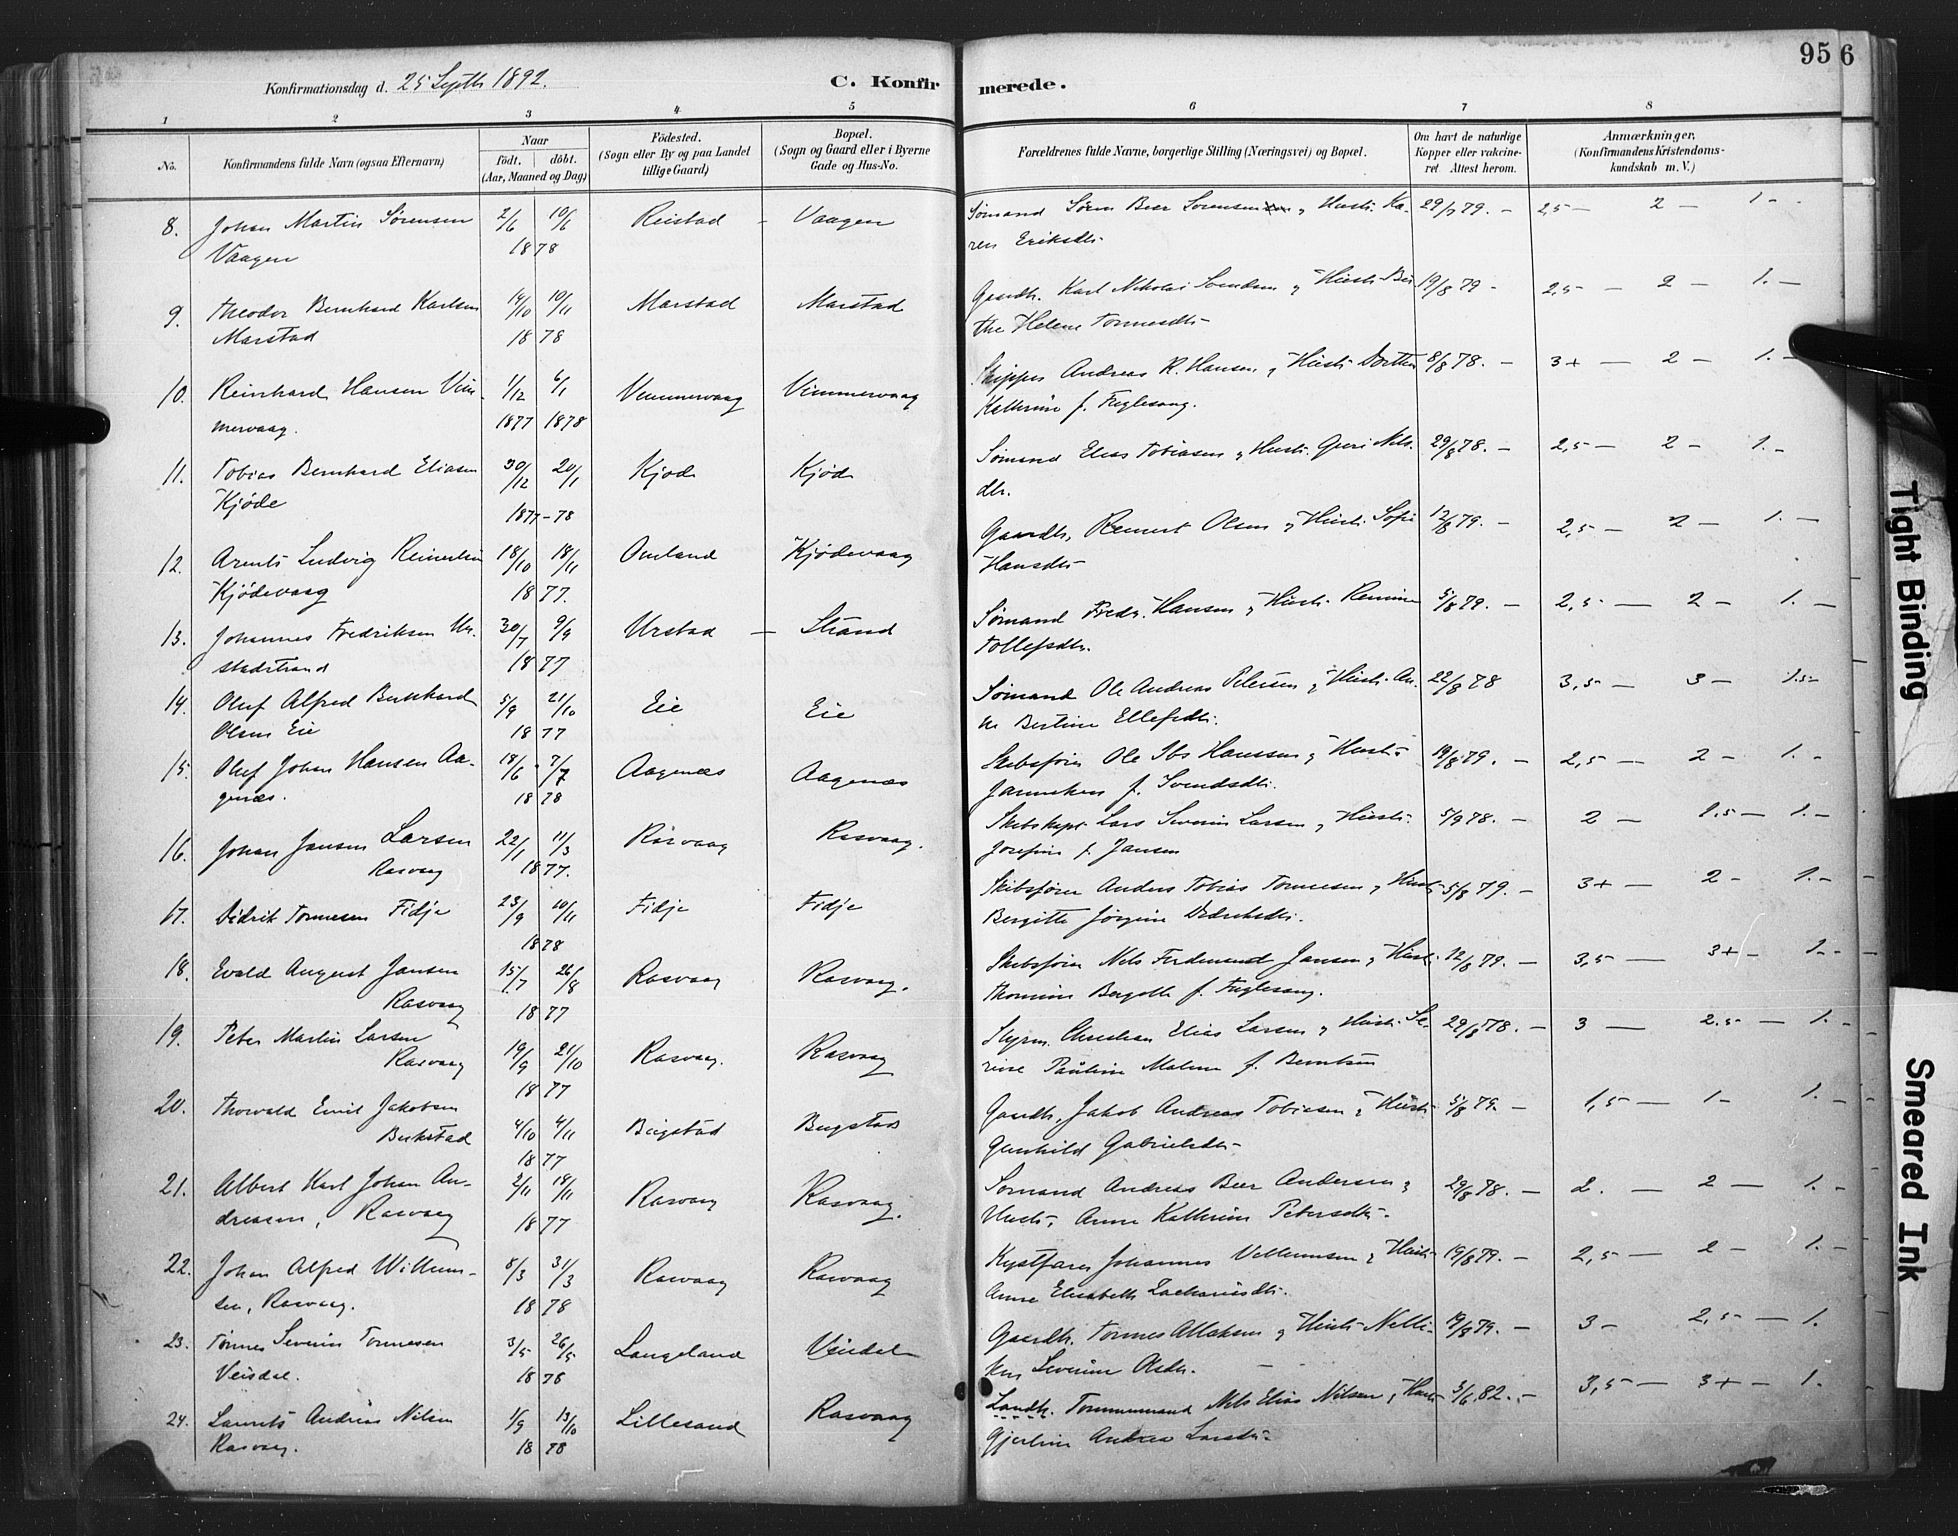 95 6
Konfirmationsdag d. 25 Septb 1892.
C. Konfirmerede.
1 2 3 4 5 6 7 8
No.
Konfirmandens fulde Navn (ogsaa Efternavn)
Naar
födt. döbt.
(Aar, Maaned og Dag)
Födested.
(Sogn eller By og paa Landet
tillige Gaard)
Bopæl.
(Sogn og Gaard eller i Byerne
Gade og Hus-No.
Forældrenes fulde Navne, borgerlige Stilling (Næringsvei) og Bopæl.
Om havt de naturlige
Kopper eller vakcine-
ret Attest herom.
Anmærkninger,
(Konfirmandens Kristendoms-
kundskab m. V.)
8. Johan Martin Sørensen 2/6 10/6 Reistad – Vaagen Sømand Søren Beer Sorensen & Hustr. Ka- 29/7 79. – 2,5 – 2 – 1 –
Vaagen 1878 ren Eriksdtr
9. Theodor Bernhard Karlsen 14/10 10/11 Marstad Marstad Gaardbr. Karl Nikolai Svendsen & Hustr. Ber- 19/8 79 – 2,5 – 2 – 1. –
Marstad 1878 the Helene Tonnesdtr
10. Reinhard Hansen Vim- 1/12 6/1 Vemmervaag Vimmervaag Skipper Andreas R. Hansen & Hustr. Dorthea 8/8 78. – 3+ – 2 – 1. –
mervaag. 1877 1878 Kathrine f. Fuglesang.
11. Tobias Bernhard Eliasen 30/12 20/1 Kjøde Kjøde Sømand Elias Tobiasen & Hustr. Guri Nils- 29/8 78. – 2,5 – 2 – 1. –
Kjøde 1877–78 dtr.
12. Arents Ludvig Reinertsen 18/10 18/11 Omland Kjødevaag Gaardbr. Reinert Olsen & Hustr. Sofie 12/8 79. – 2,5 – 2 – 1. –
Kjødevaag 1877. Hansdtr
13. Johannes Fredriksen Ur- 30/7 9/9 Urstad – Strand Sømand Fredr. Hansen & Hustr. 5/8 79. – 2,5 – 2 – 1. –
stadstrand 1877 Tollefsdtr.
14. Oluf Alfred Bernhard 5/9 21/10 Eie Eie Sømand Ole Andreas Petersen & Hustr. An- 22/8 78 3,5 – 3 – 1.5–
Olsen Eie 1877 ne Bertine Ellefsdtr.
15. Oluf Johan Hansen Aa- 18/6 7/7 Aagenæs Aagenæs Skibsfører Ole Ibs Hanssen & Hustr. 19/8 79. – 2,5 – 2 – 1. –
genæs. 1878 Janneken f. Svendsdtr.
16. Johan Jansen Larsen 22/1 11/3 Rasvaag Rasvaag. Skibskapt. Lars Severin Larsen & Hustr. 5/9 78. – 2 – 1.5 – 1. –
Rasvaag 1877. Josefine f. Jansen
17. Didrik Tonnesen Fidje 23/9 10/11 Fidje Fidje Skibsfører Anders Tobias Tonnesen & Hustr. 5/8 79. – 3+ – 2 – 1. –
1878 Bergitte Jörgine Dedrichsdtr.
18. Evald August Jansen 15/7 26/8 Rasvaag Rasvaag. Skibsfører Nels Ferdinand Jansen & Hustr. 12/8 79. – 3,5 – 3+ – 1. –
Rasvaag 1877 Thomine Bergitte f. Fuglesang.
19. Peter Martin Larsen 19/9 21/10 Rasvaag. Rasvaag Styrm. Christian Elias Larsen & Hustr. Se- 29/8 78. – 3 – 2.5 – 1. –
Rasvaag 1877 rine Pauline Malene f. Berntsen
20. Thorvald Emil Jakobsen 4/10 4/11 Bugstad Bugstad Gaardbr. Jakob Andreas Tobiesen & Hustr. 5/8 79. – 1,5 – 1 – 1. –
Bukstad 1877 Gunhild Gabrielsdtr
21. Albert Karl Johan An- 2/11 18/11 Rasvaag Rasvaag. Sømand Andreas Beer Andersen & 29/8 78. – 2. – 2 – 1. –
dreasen, Rasvaag 1877 Hustr. Anne Kathrine Petersdtr.
22. Johan Alfred Willum- 8/3 31/3 Rasvaag Rasvaag Kystfarer Johannes Vellumsen & Hustr. 19/8 79. – 2,5 – 2 – 1. –
sen, Rasvaag. 1878 Anne Elisabeth Zachariasdtr.
23. Tønnes Severin Tonnesen 3/5 26/5 Langeland Veisdal Gaardbr. Tonnes Atlaksen & Hustr. Nelli- 19/8 79. – 3 – 2,5 – 1.
Veisdal. 1878 ken Severine Olsdtr.
24. Laurits Andreas Nilsen 1/9 13/10 Lillesand Rasvaag Landh. Tommermand Nels Elias Nilsen & Hustr. 3/6 82. – 3,5 – 3+ – 1.
Rasvaag. 1878 Gjertine Andrea Larsdtr.
Tight Binding
Smeared Ink